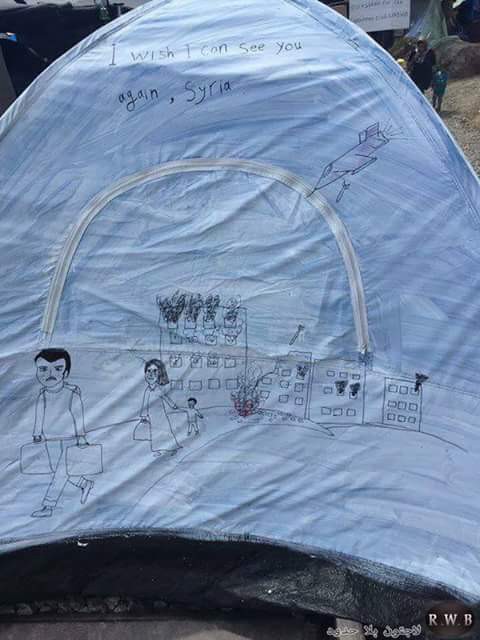 I wish I can see you
again, Syria
لاجئون بلا حدود
R W B